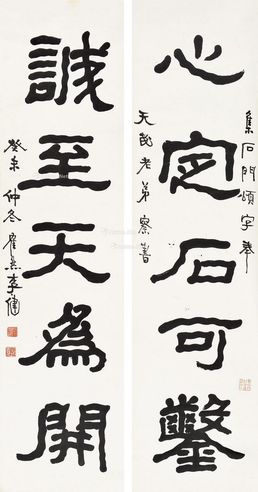 心定石可鑿
集石門頌字奉
天民老弟察書
誠至天為開
癸未仲冬鷹然李健